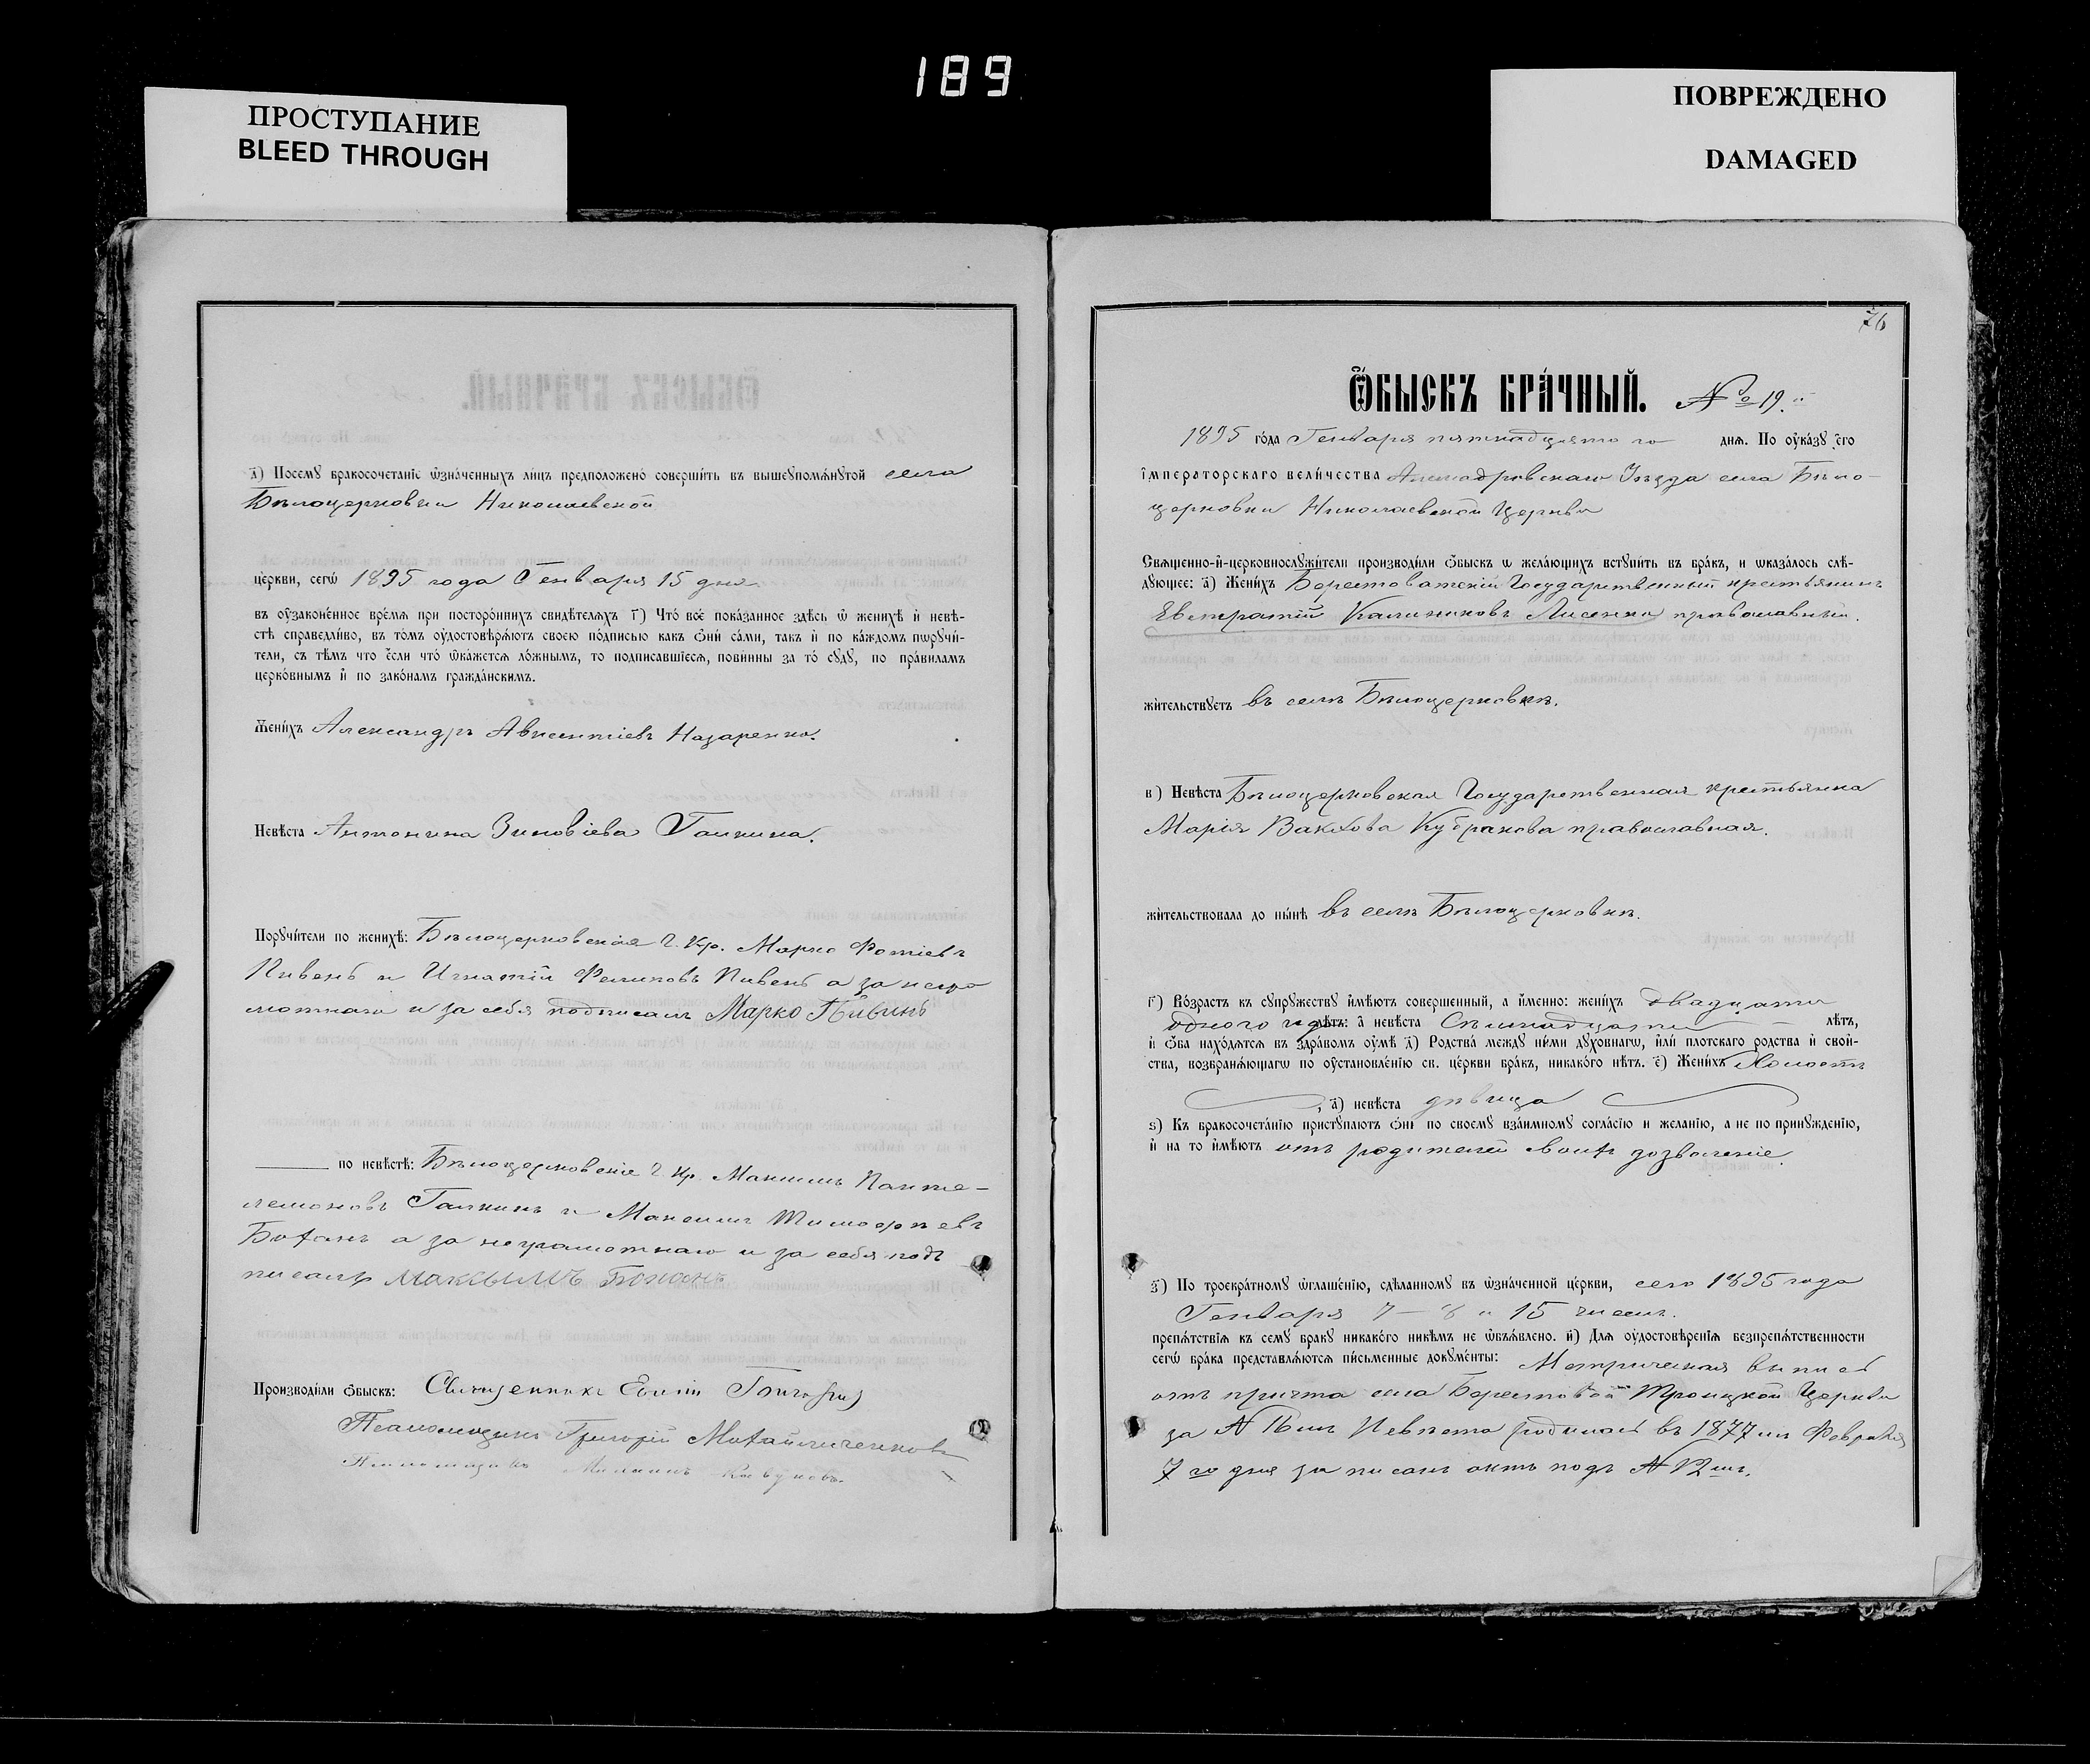 189
ПРОСТУПАНИЕ
BLEED THROUGH
ПОВРЕЖДЕНО
DAMAGED
д҃) Посемꙋ бракосочетаніе ѡзна́ченныхъ ли́цъ предположено̀ соверши́ть въ вышеꙋпомѧ́нꙋтой села
Бѣлоцерковки Николаевской
це́ркви, сегѡ̀ 1895 года Генваря 15 дня
въ оузако́ненное вре́мѧ при посторо́ннихъ свидѣ́телѧхъ г҃) Что̀ всѐ пока́занное здѣ́сь ѡ женихѣ̀ и҆ невѣ́-
стѣ справедли́во, въ то́мъ оудостовѣрѧ́ютъ своею по́дписью какъ ѻнѝ са́ми, такъ и҆ по ка́ждомъ пѡрꙋчи́-
тели, съ тѣ́мъ что є҆́сли что̀ ѡка́жетсѧ ло́жнымъ, то подписавшіесѧ, пови́нны за то̀ сꙋдꙋ̀, по пра́виламъ
церко́внымъ и҆ по зако́намъ гражда́нскимъ.
Жени́хъ Александръ Авксентіевъ Назаренко.
Невѣ́ста Антонина Зиновіева Галкина.
Порꙋчи́тели по женихѣ̀: Бѣлоцерковскія Г. Кр. Марко Фотіевъ
Пивень и Игнатій Филиповъ Пивень а за негра
мотнаго и за себя подписалъ Марко Пивинь
по невѣ́стѣ: Бѣлоцерковскіе Г. Кр. Максимъ Панте-
лемоновъ Галкинъ и Максимъ Тимофѣевъ
Боханъ а за неграмотнаго и за себя под
писалъ Максымъ Боханъ
Производи́ли ѻ҆́быскъ: Священникъ
Псаломщикъ Григорій Михайличенковъ
Псаломщикъ
76
Ѻ҆БЫСКЪ БРА́ЧНЫЙ. №19.
1895 го́да Генваря пятнадцатого днѧ. По оука́зꙋ є҆гѡ
і҆мператорскаго вели́чества Александровскаго Уѣзда села Бѣло-
церковки Николаевской Церкви
Свѧще́нно-и҆-церковнослꙋжи́тели производи́ли ѻ҆́быскъ ѡ жела́ющихъ встꙋпи́ть въ бра́къ, и ѡказа́лось слѣ́-
дꙋющее: а҃) Жени́хъ Берестоватскій Государственный крестьянинъ
Евстратій Калиниковъ Лисенко православный.
жи́тельствꙋетъ въ селѣ Бѣлоцерковкѣ.
в҃) Невѣ́ста Бѣлоцерковская Государственная крестьянка
Марія Кубракова православная.
жи́тельствовала до ны́нѣ въ селѣ Бѣлоцерковкѣ.
г҃) Во́зрастъ къ сꙋпрꙋжествꙋ и҆мѣ́ютъ соверше́нный, а и҆́менно: жени́хъ двадцати
одного года лѣтъ: а҆ невѣ́ста Сѣмнадцати лѣтъ,
и҆ ѻ҆́ба нахо́дѧтсѧ въ здра́вомъ оумѣ̀ д҃) Родства̀ междꙋ ни́ми дꙋхо́внагѡ, и҆лѝ пло́тскаго родства̀ и҆ свой-
ства, возбранѧ́ющагѡ по оустановле́нію св. це́ркви бра́къ, никако́го нѣ́тъ. є҃) Жени́хъ Холостъ
, а҆) невѣ́ста дѣвица
ѕ҃) Къ бракосочета́нію пристꙋпа́ютъ ѻнѝ по своемꙋ̀ вза́имномꙋ согла́сію и жела́нію, а не по принꙋжде́нію,
и҆ на то и҆мѣ́ютъ отъ родителей своихъ дозволеніе.
з҃) По троекра́тномꙋ ѡглаше́нію, сдѣ́ланномꙋ въ ѡзна́ченной це́ркви, сего 1895 года
Генваря 7 – 8 и 15 числъ.
препѧ́тствіѧ къ семꙋ̀ бракꙋ никако́го никѣ́мъ не ѡб̾ѧ́влено. и҃) Длѧ оудостовѣ́ренія безпрепѧ́тственности
сегѡ̀ бра́ка представлѧ́ютсѧ пи́сьменные докꙋме́нты: Метрическая выпись
отъ причта села Берестовой Троицкой Церкви
за № 16мъ Невѣста родилась въ 1877мъ Февраля
7го дня записанъ актъ подъ № 12мъ.